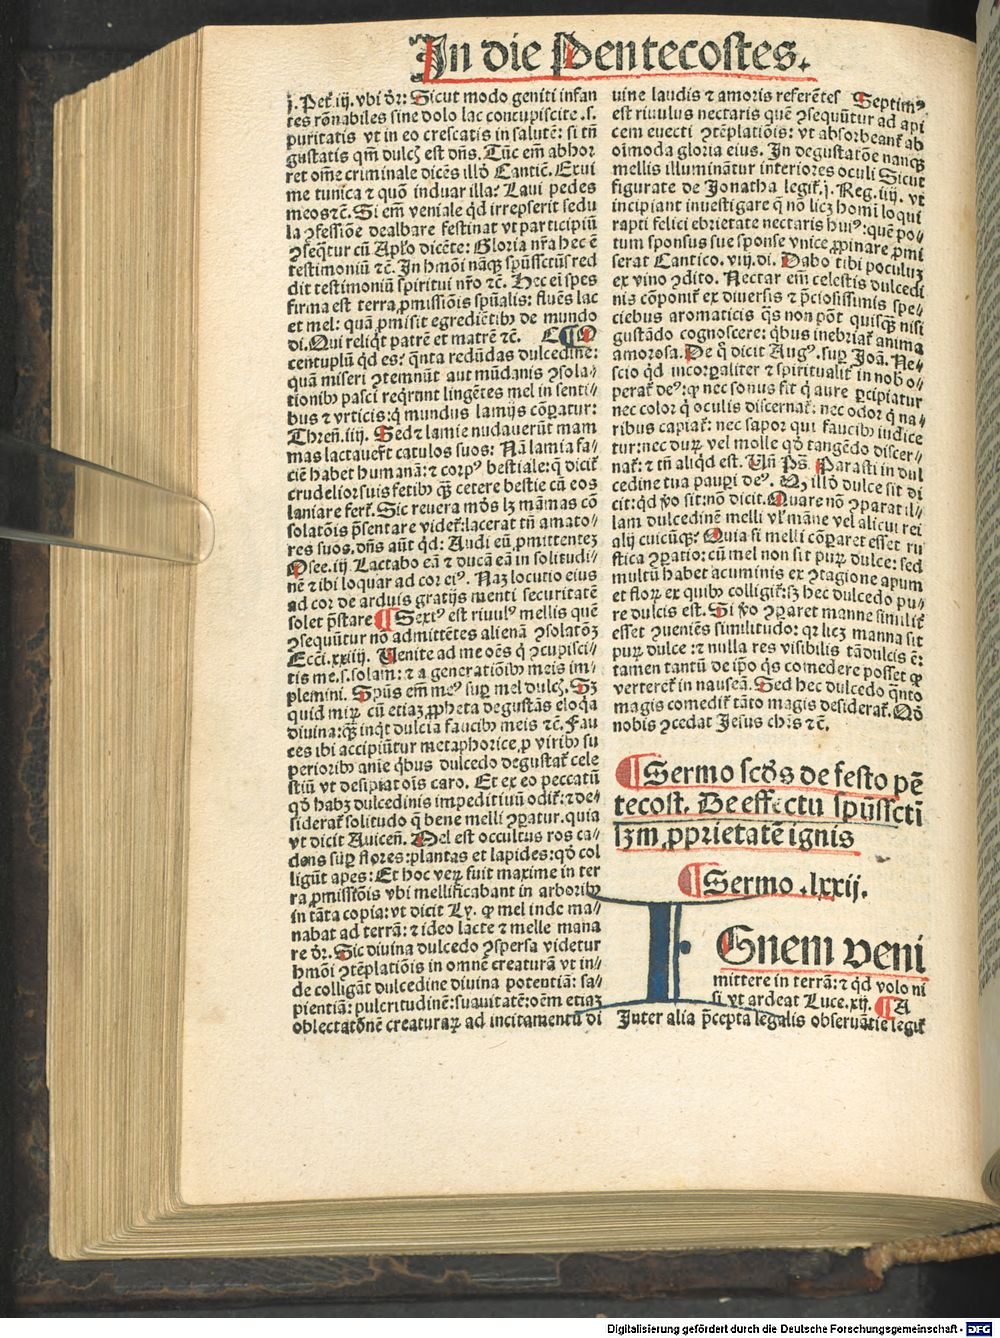 In die Pentecostes.
j. Pet. iij. vbi dr: Sicut modo geniti infan
tes rōnabiles sine dolo lac concupiscite .s.
puritatis vt in eo crescatis in salutē: si tn̄
gustatis qm̄ dulcꝫ est dn̄s. Tūc em̄ abhor
ret om̄e criminale dicēs illō Cantic̄. Exui
me tunica ⁊ quō induar illa? Laui pedes
meos ⁊c̄. Si em̄ veniale qd irrepserit sedu
la ꝯfessiōe dealbare festinat vt participiū
ꝯseqtur cū Aplo dicēte: Gloria nr̄a hec ē
testimoniū ⁊c̄. In hmōi nāqꝫ spūssctūs red
dit testimoniū spiritui nr̄o ⁊c̄. Hec ei spes
firma est terra ꝓmissiōis spūalis: fluēs lac
et mel: quā ꝓmisit egrediētibꝰ de mundo
di. Qui reliqt patrē et matrē ⁊c̄. C ¶ O
centuplū qd es? qnta redūdas dulcedine:
quā miseri ꝯtemnūt aut mūdanis ꝯsola⸗
tionibꝰ pasci reqrunt lingētes mel in senti⸗
bus ⁊ vrticis: q mundus lamijs cōparatur:
Thren̄. iiij. Sed ⁊ lamie nudauerūt mam
mas lactauert catulos suos: Nā lamia fa⸗
ciē habet humanā: ⁊ corpꝰ bestiale: q dicit
crudelior suis fetibꝰ qꝫ cetere bestie cū eos
laniare fert. Sic reuera mōs lꝫ māmas cō
solatōis p̄sentare videt: lacerat tn̄ amato⸗
res suos. dn̄s aūt qd: Audi eū ꝓmittentez
Osee. iij. Lactabo eā ⁊ ducā eā in solitudi⸗
nē ⁊ ibi loquar ad cor eiꝰ. Naꝫ locutio eius
ad cor de arduis gratijs menti securitatē
solet p̄stare ¶ Sextꝰ est riuulꝰ mellis quē
ꝯsequūtur nō admittētes alienā ꝯsolatōꝫ
Ecc̄i. xxiiij. Uenite ad me oēs q ꝯcupisci⸗
tis me. s. solam: ⁊ a generatiōibꝰ meis im⸗
plemini. Spūs em̄ meꝰ suꝑ mel dulcꝫ. Sꝫ
quid miꝝ cū etiaꝫ ꝓpheta degustās eloqa
divina: qꝫ inqt dulcia faucibꝰ meis ⁊c̄. Fau
ces ibi accipiūtur metaphorice ꝓ viribꝰ su
perioribꝰ anie qbus dulcedo degustat cele
stiū vt desipiat oīs caro. Et ex eo peccatū
qō habꝫ dulcedinis impeditiuū odit: ⁊ de⸗
siderat solitudo q bene melli ꝯparatur. quia
vt dicit Auicen̄. Mel est occultus ros ca⸗
dens suꝑ flores: plantas et lapides: qō col
ligūt apes: Et hoc veꝝ fuit maxime in ter
ra ꝓmissiōis vbi mellificabant in arboribꝰ
in tāta copia: vt dicit Ly. ꝙ mel inde ma⸗
nabat ad terrā: ⁊ ideo lacte ⁊ melle mana
re dr̄. Sic divina dulcedo ꝯspersa videtur
hmōi ꝯtēplatiōis in omnē creaturā vt in⸗
de colligāt dulcedine diuina potentiā: sa⸗
pientiā: pulcritudinē: suauitatē: oēm etiaꝫ
oblectatōnē creaturaꝝ ad incitamentū di
uine laudis ⁊ amoris referētes Septimꝰ
est riuulus nectaris quē ꝯsequūtur ad api
cem euecti ꝯtēplatiōis: vt absorbeant ab
oīmoda gloria eius. In degustatōe nanqꝫ
mellis illuminātur interiores oculi Sicut
figurate de Jonatha legit. j. Reg. iiij. vt
incipiant inuestigare q nō licꝫ homī loqui
rapti felici ebrietate nectaris huiꝰ: quē po⸗
tum sponsus sue sponse vnice ꝓpinare ꝓmi
serat Cantico. viij. di. Dabo tibi poculuꝫ
ex vino ꝯdito. Nectar em̄ celestis dulcedi
nis cōponit ex diuersis ⁊ p̄ciosissimis spe⸗
ciebus aromaticis qs non pōt quisqꝫ nisi
gustādo cognoscere: qbus inebriat anima
amorosa. De q dicit Augꝰ. suꝑ Joā. Ne⸗
scio qd incorꝑaliter ⁊ spiritualit in nob o⸗
perat deꝰ: ꝙ nec sonus sit q aure ꝑcipiatur
nec color q oculis discernat: nec odor q na⸗
ribus capiat: nec sapor qui faucibꝰ iudice
tur: nec duꝝ vel molle qō tangēdo discer⸗
nat: ⁊ tn̄ aliqd est. Un̄ Ps̄. Parasti in dul
cedine tua pauꝑi deꝰ. O, illō dulce sit di
cit: qd v̄o sit: nō dicit. Quare nō ꝯparat il⸗
lam dulcedinē melli vl māne vel alicui rei
alij cuicūqꝫ? Quia si melli cōparet esset ru
stica ꝯparatio: cū mel non sit puꝝ dulce: sed
multū habet acuminis ex ꝯtagione apum
et floꝝ ex quibꝰ colligit: sꝫ hec dulcedo pu⸗
re dulcis est. Si v̄o ꝯparet manne similit
esset ꝯueniēs similitudo: qꝛ licꝫ manna sit
puꝝ dulce: ⁊ nulla res visibilis tā dulcis ē:
tamen tantū de ip̄o qs comedere posset ꝙ
verteret in nauseā. Sed hec dulcedo qnto
magis comedit tāto magis desiderat. Qō
nobis ꝯcedat Jesus chr̄s ⁊c̄.
¶ Sermo scōs de festo pē
tecost. De effectu spūssctī
lꝫm ꝓprietatē ignis
¶ Sermo .lxxij.
IGnem veni
mittere in terrā: ⁊ qd volo ni
si vt ardeat Luce. xij. ¶ A
Inter alia p̄cepta legalis obseruātie legit
Digitalisierung gefördert durch die Deutsche Forschungsgemeinschaft - DFG